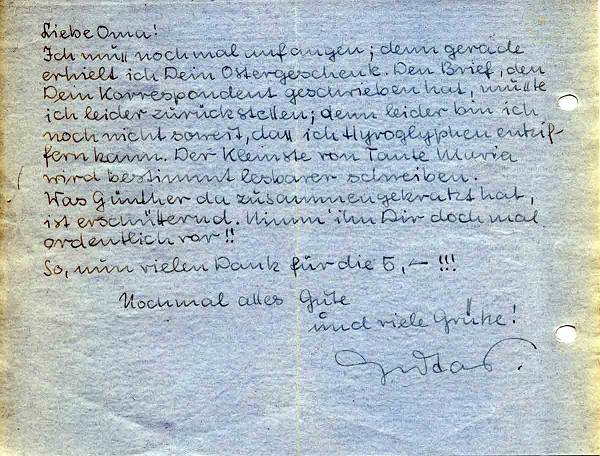 Liebe Oma!
Ich muß nochmal anfangen; denn gerade
erhielt ich Dein Ostergeschenk. Den Brief, den
Dein Korrespondent geschrieben hat, mußte
ich leider zurückstellen; denn leider bin ich
noch nicht soweit, daß ich Hyroglyphen entzif-
fern kann. Der Kleinste von Tante Maria
wird bestimmt lesbarer schreiben.
Was Günther da zusammengekratzt hat,
ist erschütternd. Nimm' ihn Dir doch mal
ordentlich vor!!
So, nun vielen Dank für die 5,— !!!
Nochmal alles Gute
und viele Grüße!